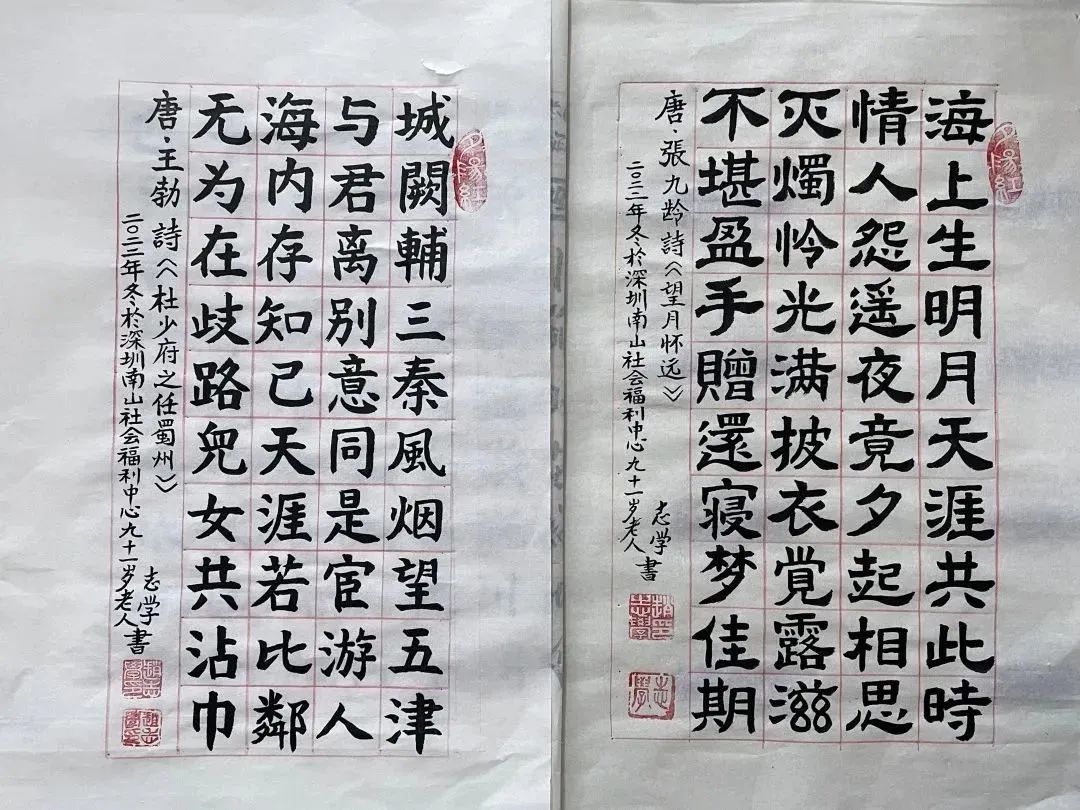 夕陽紅
海上生明月天涯共此時
情人怨遥夜竟夕起相思
灭燭怜光满披衣覺露滋
不堪盈手贈還寝梦佳期
唐·張九龄詩《望月怀远》
二〇二二年冬於深圳南山社会福利中心九十一岁老人志学書
志学
夕陽紅
城闕輔三秦風烟望五津
与君离别意同是宦游人
海内存知己天涯若比鄰
无为在歧路兒女共沾巾
唐·王勃詩《杜少府之任蜀州》
二〇二二年冬·於深圳南山社会福利中心九十一岁老人志学書